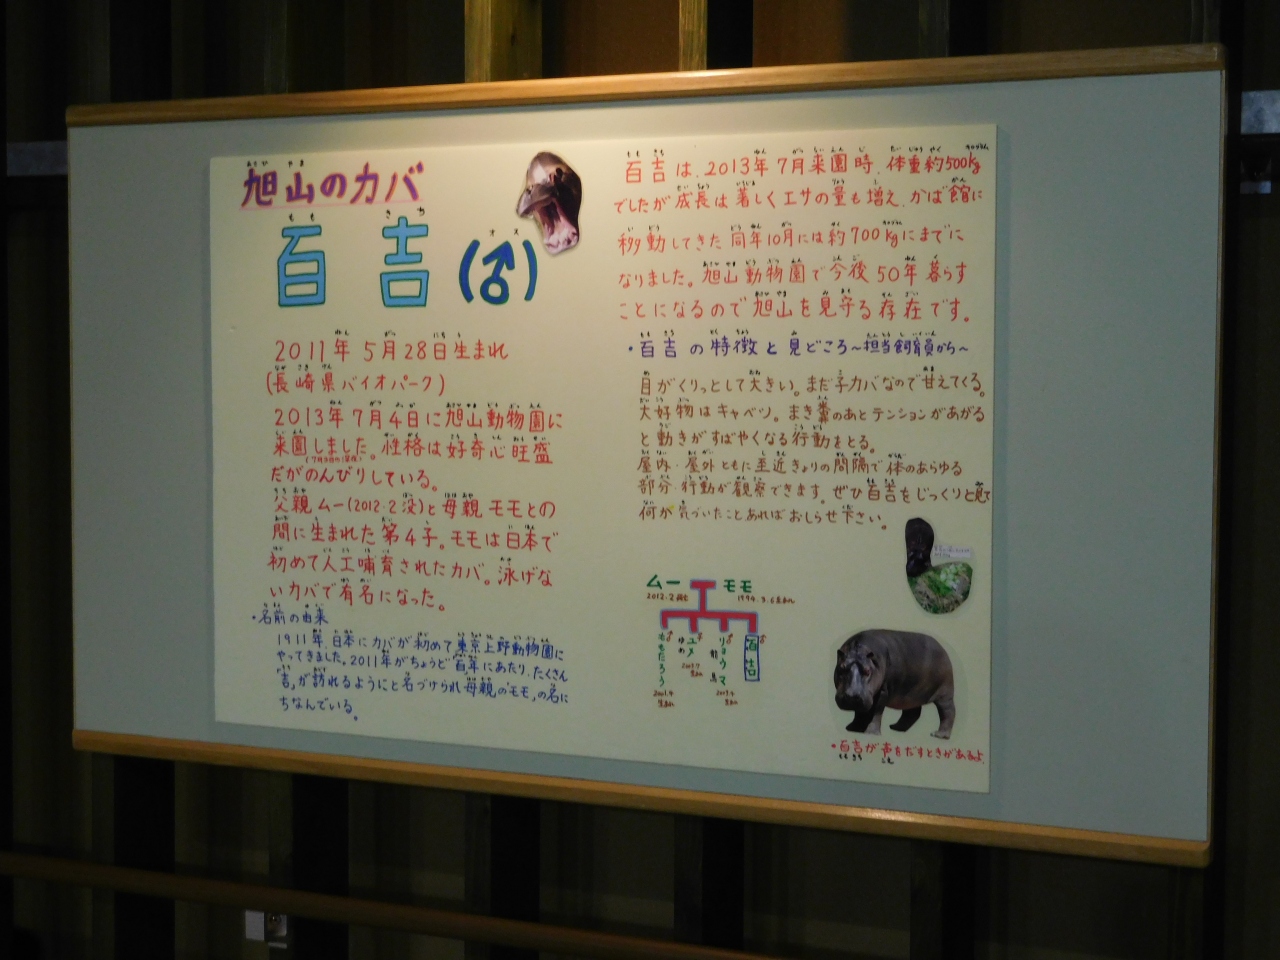 旭山のカバ
百吉(♂)
2011年5月28日生まれ
(長崎県バイオパーク)
2013年7月4日に旭山動物園に
来園しました。性格は好奇心旺盛
だがのんびりしている。
父親ムー(2012.2没)と母親モモとの
間に生まれた第4子。モモは日本で
初めて人工哺育されたカバ。泳げな
いカバで有名になった。
・名前の由来
1911年、日本にカバが初めて東京上野動物園に
やってきました。2011年がちょうど百年にあたり、たくさん
"吉"が訪れるようにと名づけられ母親の"モモ"の名に
ちなんでいる。
百吉は、2013年7月来園時、体重約500kg
でしたが成長は著しくエサの量も増え、かば館に
移動してきた同年10月には約700kgにまでに
なりました。旭山動物園で今後50年暮らす
ことになるので旭山を見守る存在です。
・百吉の特徴と見どころ~担当飼育員から~
目がくりっとして大きい。まだ子カバなので甘えてくる。
大好物はキャベツ。まき糞のあとテンションがあがる
と動きがすばやくなる行動をとる。
屋内・屋外ともに至近きょりの間隔で体のあらゆる
部分・行動が観察できます。ぜひ百吉をじっくりと観て
何か気づいたことあればおしらせ下さい。
ムー モモ
2012.2 1994.3.6生まれ
ももたろう♂
ゆめ ユメ♀
龍馬 リョウマ♂
百吉♂
・百吉が声をだすときがあるよ